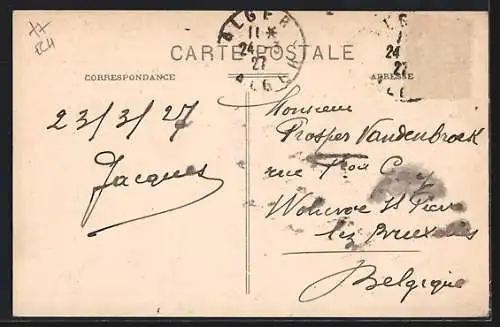 ALGER
11 *
24 - 3
27
ALGER
CARTE POSTALE
CORRESPONDANCE
ADRESSE
24
27
23/3/27
Jacques
Monsieur
Prosper Vandenbroek
rue
Woluwe St Pierre
lez Bruxelles
Belgique